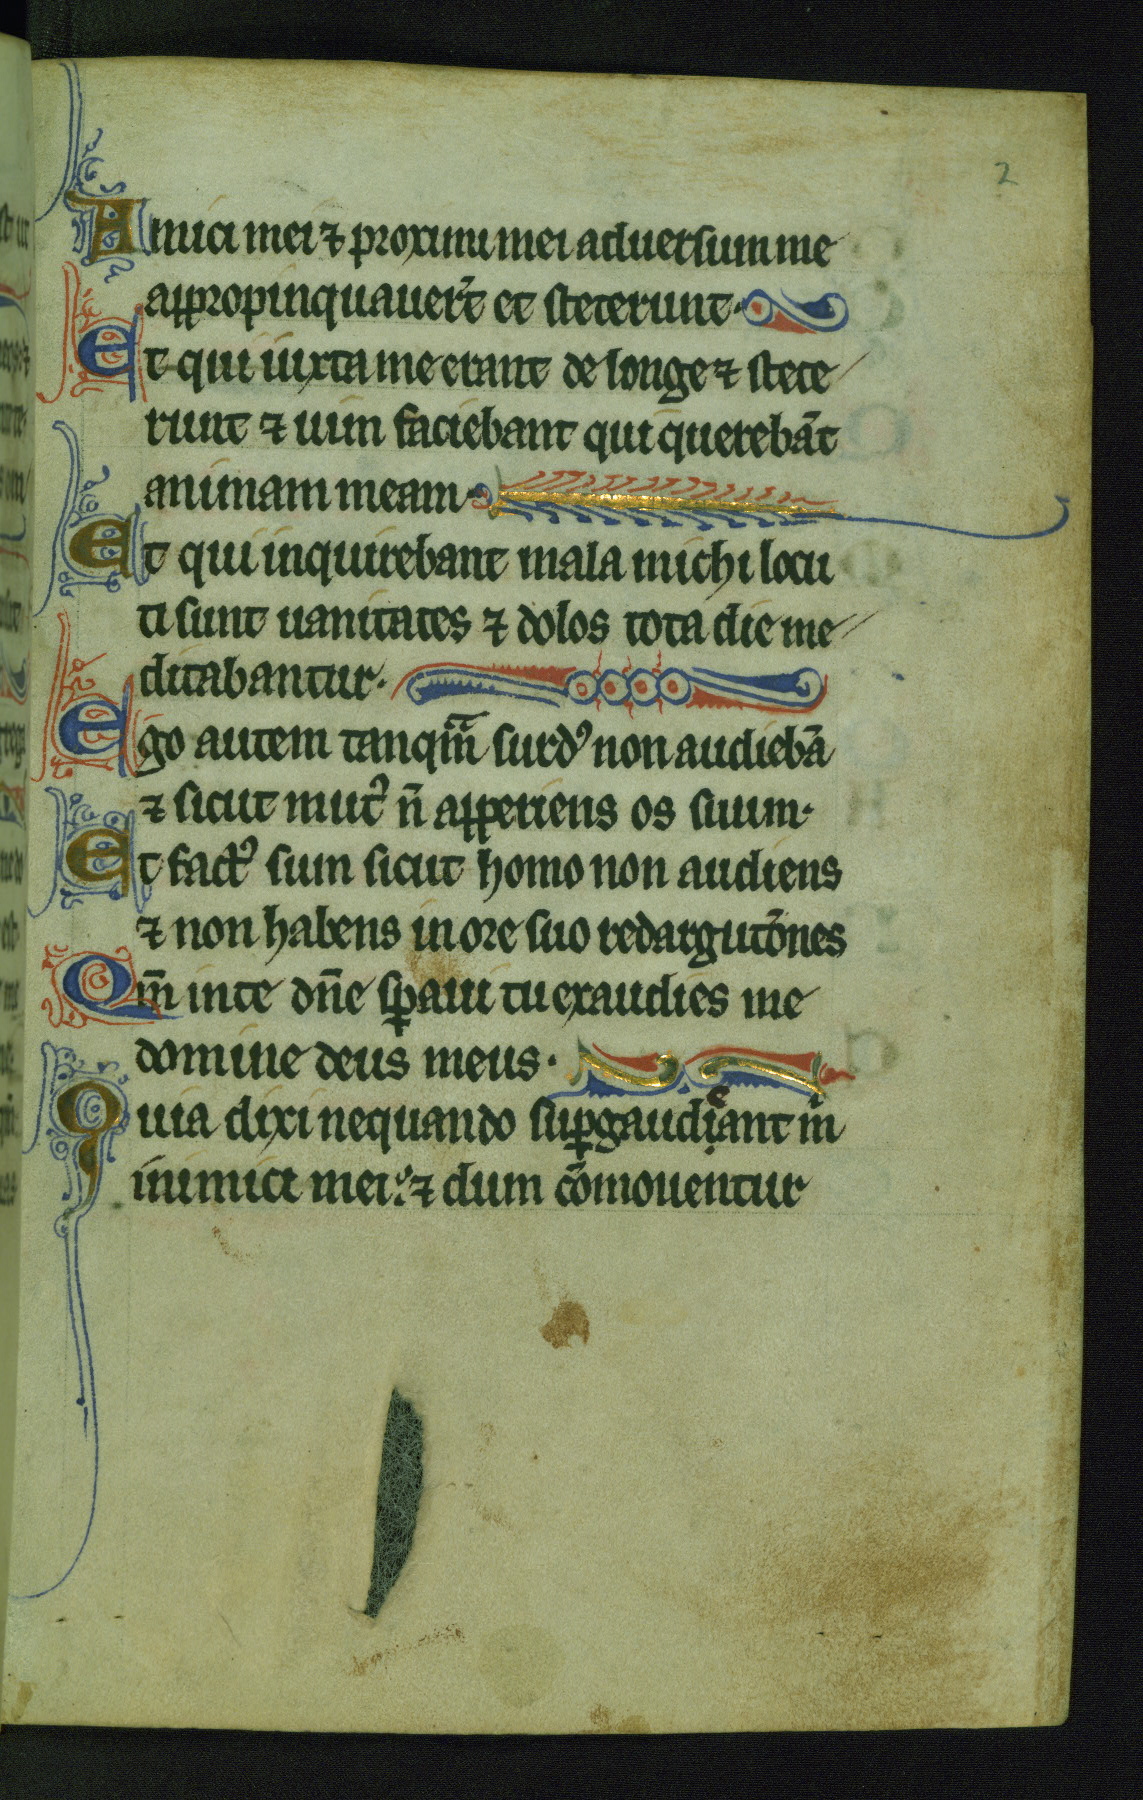 2
Amici mei ⁊ proximi mei aduersum me
appropinquauer̄t et steterunt·
Et qui iuxta me erant de longe ⁊ stete
runt ⁊ uim faciebant qui querebāt
animam meam·
Et qui inquirebant mala michi locu
ti sunt uanitates ⁊ dolos tota die me
ditabantur·
Ego autem tanqm̄ surdꝰ non audiebā
⁊ sicut mutꝰ n̄ apperiens os suum·
Et factꝰ sum sicut homo non audiens
⁊ non habens in ore suo redargutōnes
Qm̄ in te dn̄e sꝑaui tu exaudies me
domine deus meus·
Quia dixi nequando suꝑgaudieant m̄
inimici mei: ⁊ dum cōmouentur